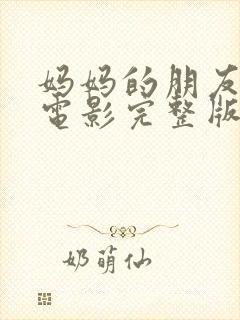 妈妈的朋友
電影完整版
奶萌仙